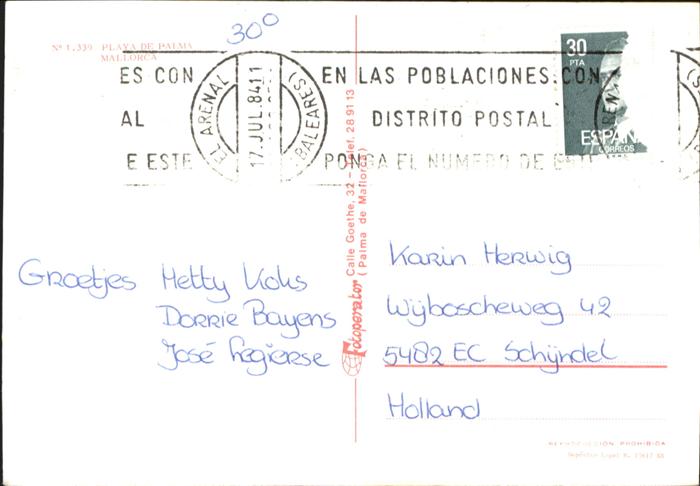 30°
Nº 1.339 PLAYA DE PALMA
MALLORCA
ES CON
AL
E ESTE
EL ARENAL
17 JUL 84 11
(BALEARES)
EN LAS POBLACIONES CON
DISTRITO POSTAL
PONGA EL NUMERO DE ESTE
30
PTA
ESPAÑA
CORREOS
Groetjes Hetty Koks
Dorrie Bayens
José Legierse
Fotoperator Calle Goethe, 32 - Telef. 28 91 13
(Palma de Mallorca)
Karin Herwig
Wijboscheweg 42
5482 EC Schijndel
Holland
REPRODUCCION PROHIBIDA
Depósito Legal B.